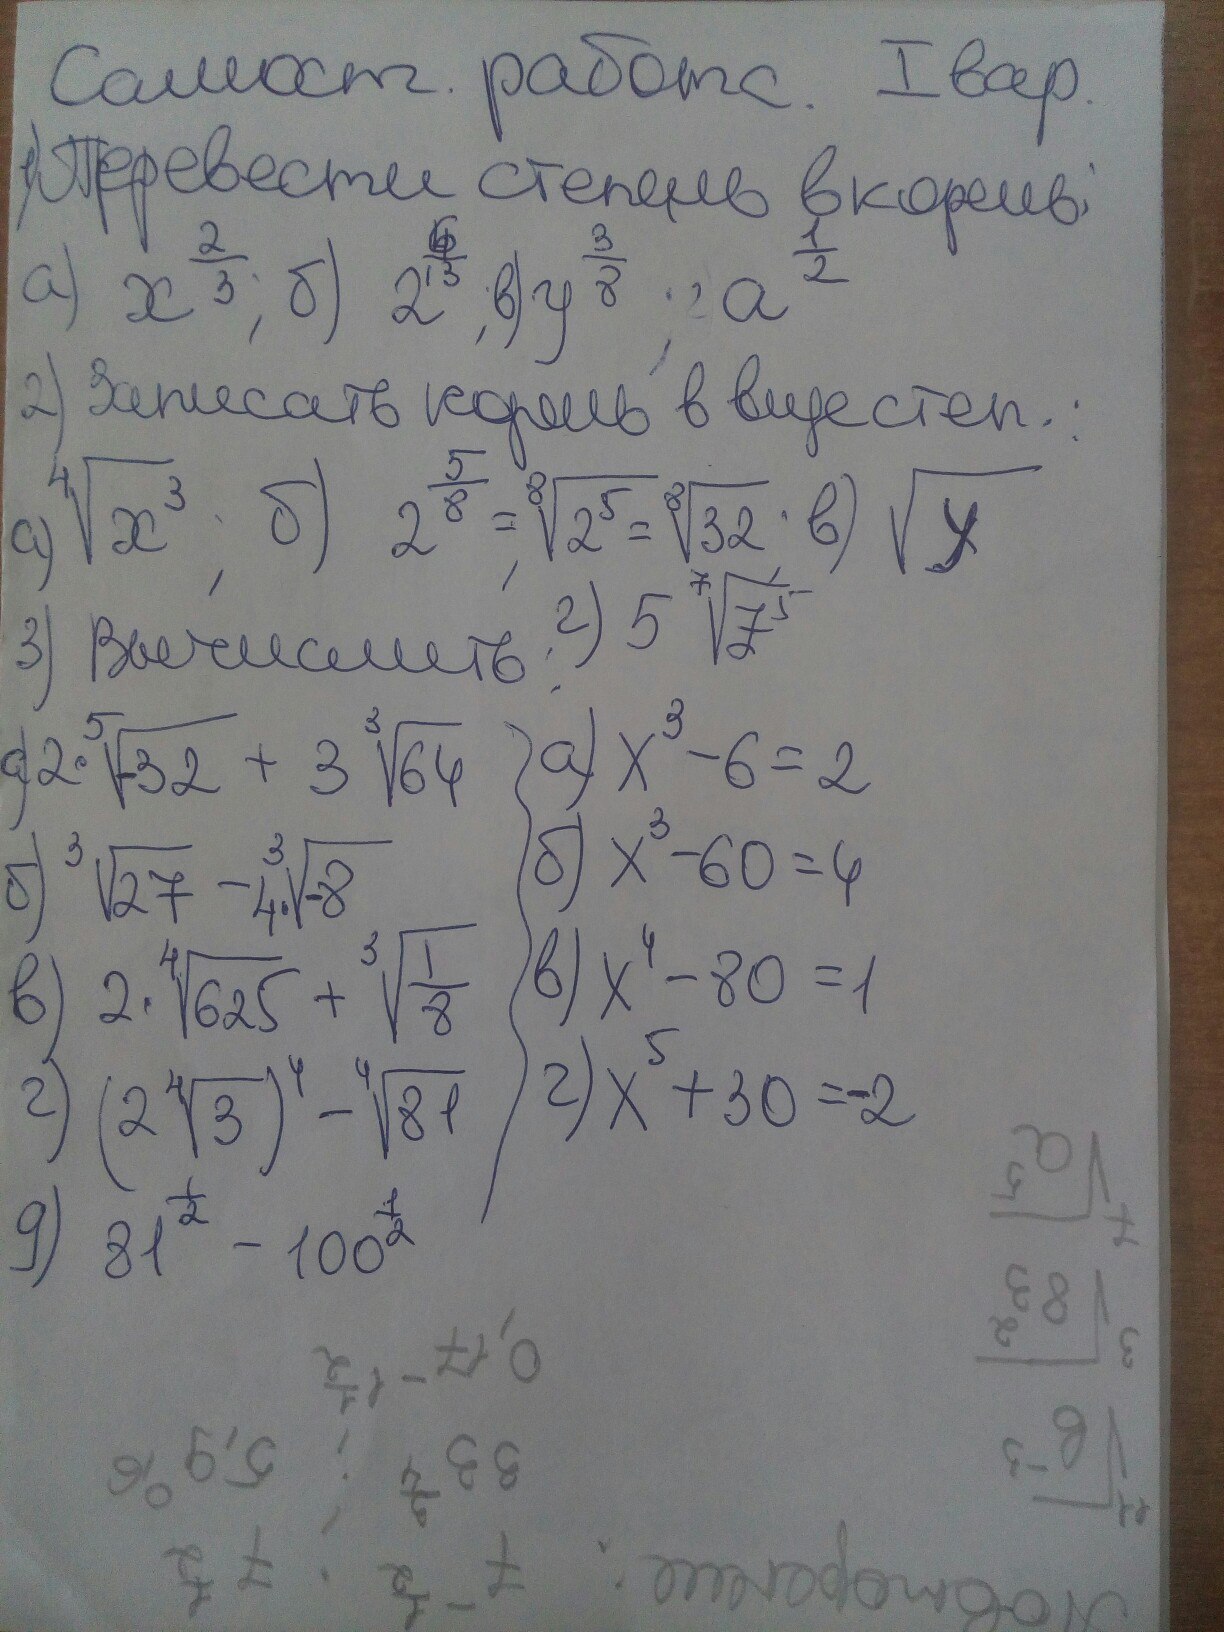 Самост. работа. I вар.
1) Перевести степень в корень:
а) x^(2/3); б) 2^(6/13); в) y^(3/8); г) a^(1/2)
2) Записать корень в виде степ.:
а) ⁴√x³; б) 2^(5/8) = ⁸√2⁵ = ⁸√32; в) √y
г) 5 ⁷√7⁵
3) Вычислить:
а) 2·⁵√-32 + 3 ³√64
б) ³√27 - 4·³√-8
в) 2·⁴√625 + ³√(1/8)
г) (2 ⁴√3)⁴ - ⁴√81
д) 81^(1/2) - 100^(1/2)
а) x³ - 6 = 2
б) x³ - 60 = 4
в) x⁴ - 80 = 1
г) x⁵ + 30 = -2
Повторение: